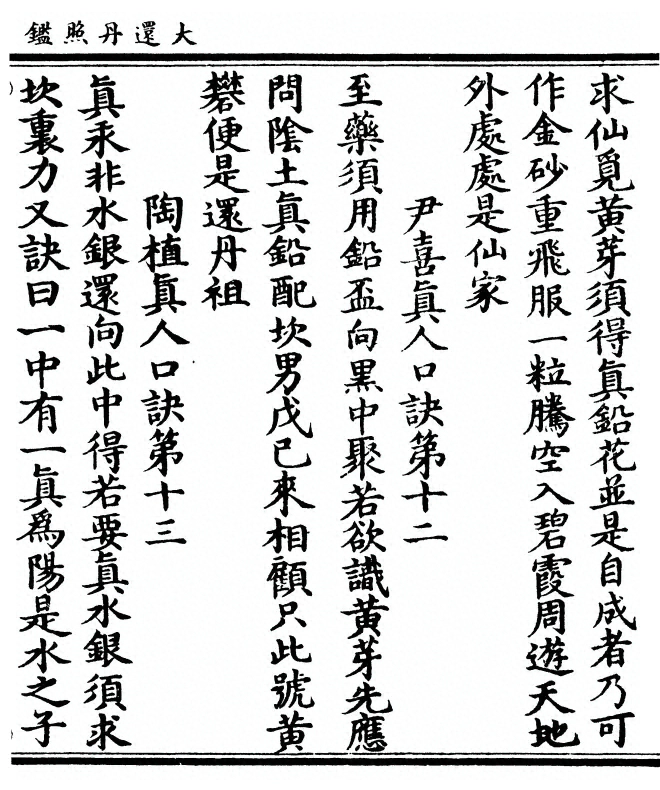 大還丹照鑑
求仙覓黃芽須得眞鉛花並是自成者乃可
作金砂重飛服一粒騰空入碧霞周遊天地
外處處是仙家
尹喜眞人口訣第十二
至藥須用鉛盃向黑中聚若欲識黃芽先應
問陰土眞鉛配坎男戊己來相顧只此號黃
礬便是還丹祖
陶植眞人口訣第十三
眞汞非水銀還向此中得若要眞水銀須求
坎裏力又訣曰一中有一眞爲陽是水之子